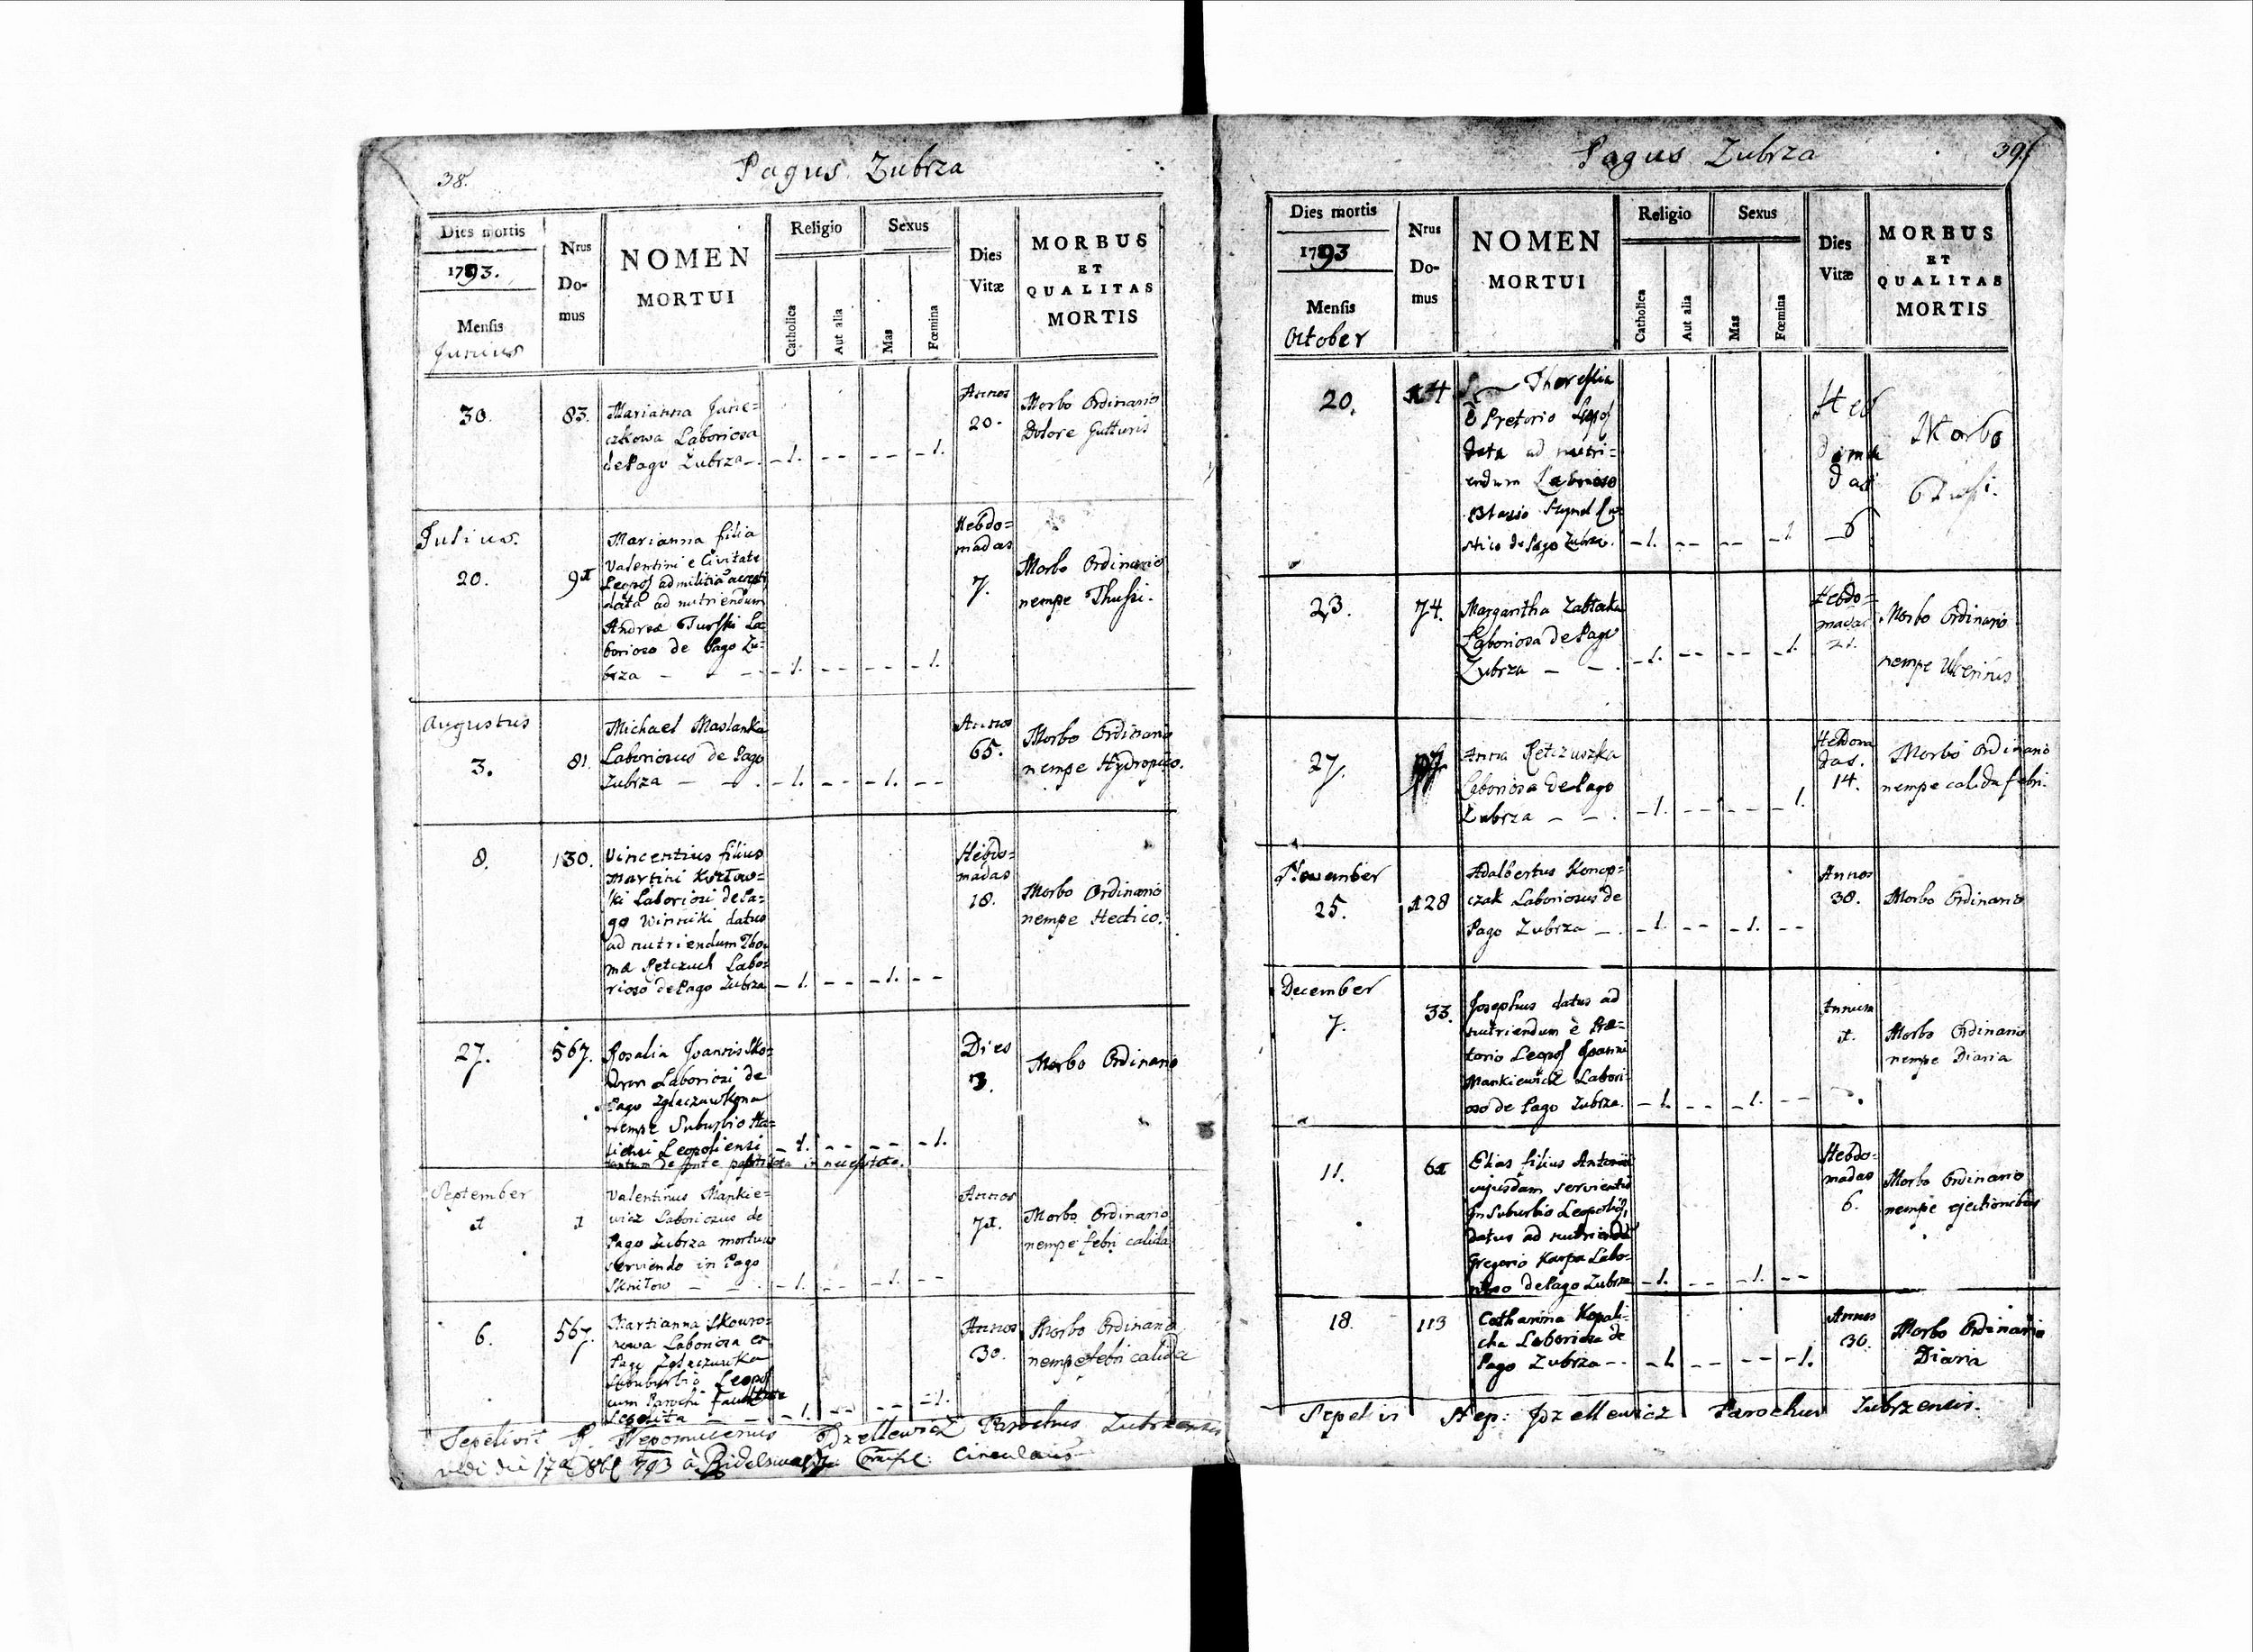 38.
Pagus Zubrza
Dies mortis
1793.
Mensis
Junius
Nrus
Do-
mus
NOMEN
MORTUI
Religio
Catholica
Aut alia
Sexus
Mas
Fœmina
Dies
Vitæ
MORBUS
ET
QUALITAS
MORTIS
30.
83.
Marianna June=
czkowa Laboriosa
de Pago Zubrza -.
- 1. - - - - - 1.
Annos
20.
Morbo Ordinario
Dolore Gutturis
Julius.
20.
91
Marianna filia
Valentini e Civitate
Leopol ad militia accepti
data ad nutriendum
Andreæ Turski La=
borioso de Pago Zu=
brza - - -
- 1. - - - - - 1.
Hebdo=
madas
7.
Morbo Ordinario
nempe Thussi.
Augustus
3.
81.
Michael Maslanka
Laboriosus de Pago
Zubrza - - .
- 1. - - - 1. - -
Annos
65.
Morbo Ordinario
nempe Hydropico.
8.
130.
Vincentius filius
Martini Kozłow=
ki Laboriosi de Pa=
go Winniki datus
ad nutriendum Tho=
mæ Petczuch Labo=
rioso de Pago Zubrza
- 1. - - - 1. - -
Hebdo=
madas
18.
Morbo Ordinario
nempe Hectico.
27.
567.
Rosalia Joannis Sko=
Laboriosi de
Pago
nempe Suburbio Ha=
Leopoliensi
tantum de fonte in necessitate.
- 1. - - - - - 1.
Dies
3.
Morbo Ordinario
September
1
1
Valentinus Mankie=
wicz Laboriosus de
Pago Zubrza mortuus
serviendo in Pago
Sknitow - - .
- 1. - - - 1. - -
Annos
71.
Morbo Ordinario
nempe febri calida
6.
567.
Martianna Skowro=
nowa Laboriosa ex
Pago
Suburbio Leopol
cum Parochi
- 1. - - - - - 1.
Annos
30.
Morbo Ordinario
nempe febri calida
Sepelivit P. Nepomucenus Jdzellewicz Parochus Zubrzensis
vidi die 17a 8br 793 Circularis
39.
Pagus Zubrza
Dies mortis
1793
Mensis
October
Nrus
Do-
mus
NOMEN
MORTUI
Religio
Catholica
Aut alia
Sexus
Mas
Fœmina
Dies
Vitæ
MORBUS
ET
QUALITAS
MORTIS
20.
Theressia
è Pretorio Leopol
data ad nutri=
endum Laborioso
Blasio
de Pago Zubrza.
- 1. - - - - - 1
Heb
doma
das
6
Morbo
Tussi.
23.
74.
Margaritha Zabłocka
Laboriosa de Pago
Zubrza - - .
- 1. - - - - - 1.
Hebdo=
madas
21.
Morbo Ordinario
nempe
27.
Anna Petczuszka
Laboriosa de Pago
Zubrza - - .
- 1. - - - - - 1.
Hebdoma
das.
14.
Morbo Ordinario
nempe calida febri.
November
25.
128
Adalbertus Konop=
czak Laboriosus de
Pago Zubrza - .
- 1. - - - 1. - -
Annos
38.
Morbo Ordinario
December
7.
33.
Josephus datus ad
nutriendum è Præ=
torio Leopol Joanni
Mankiewicz Labori=
oso de Pago Zubrza.
- 1. - - - 1. - -
Annum
1.
Morbo Ordinario
nempe Diaria
11.
61
Elias filius Antonii
cujusdam servientis
in Suburbio Leopoli
datus ad nutriend
Gregorio Karpa Labo=
rioso de Pago Zubrza
- 1. - - - 1. - -
Hebdo=
madas
6.
Morbo Ordinario
nempe ejectionibus
18.
113
Catharina Kopali=
cha Laboriosa de
Pago Zubrza - -
- 1. - - - - - 1.
Annos
30.
Morbo Ordinario
Diaria
Sepelivi Nep: Jdzellewicz Parochus Zubrzensis.